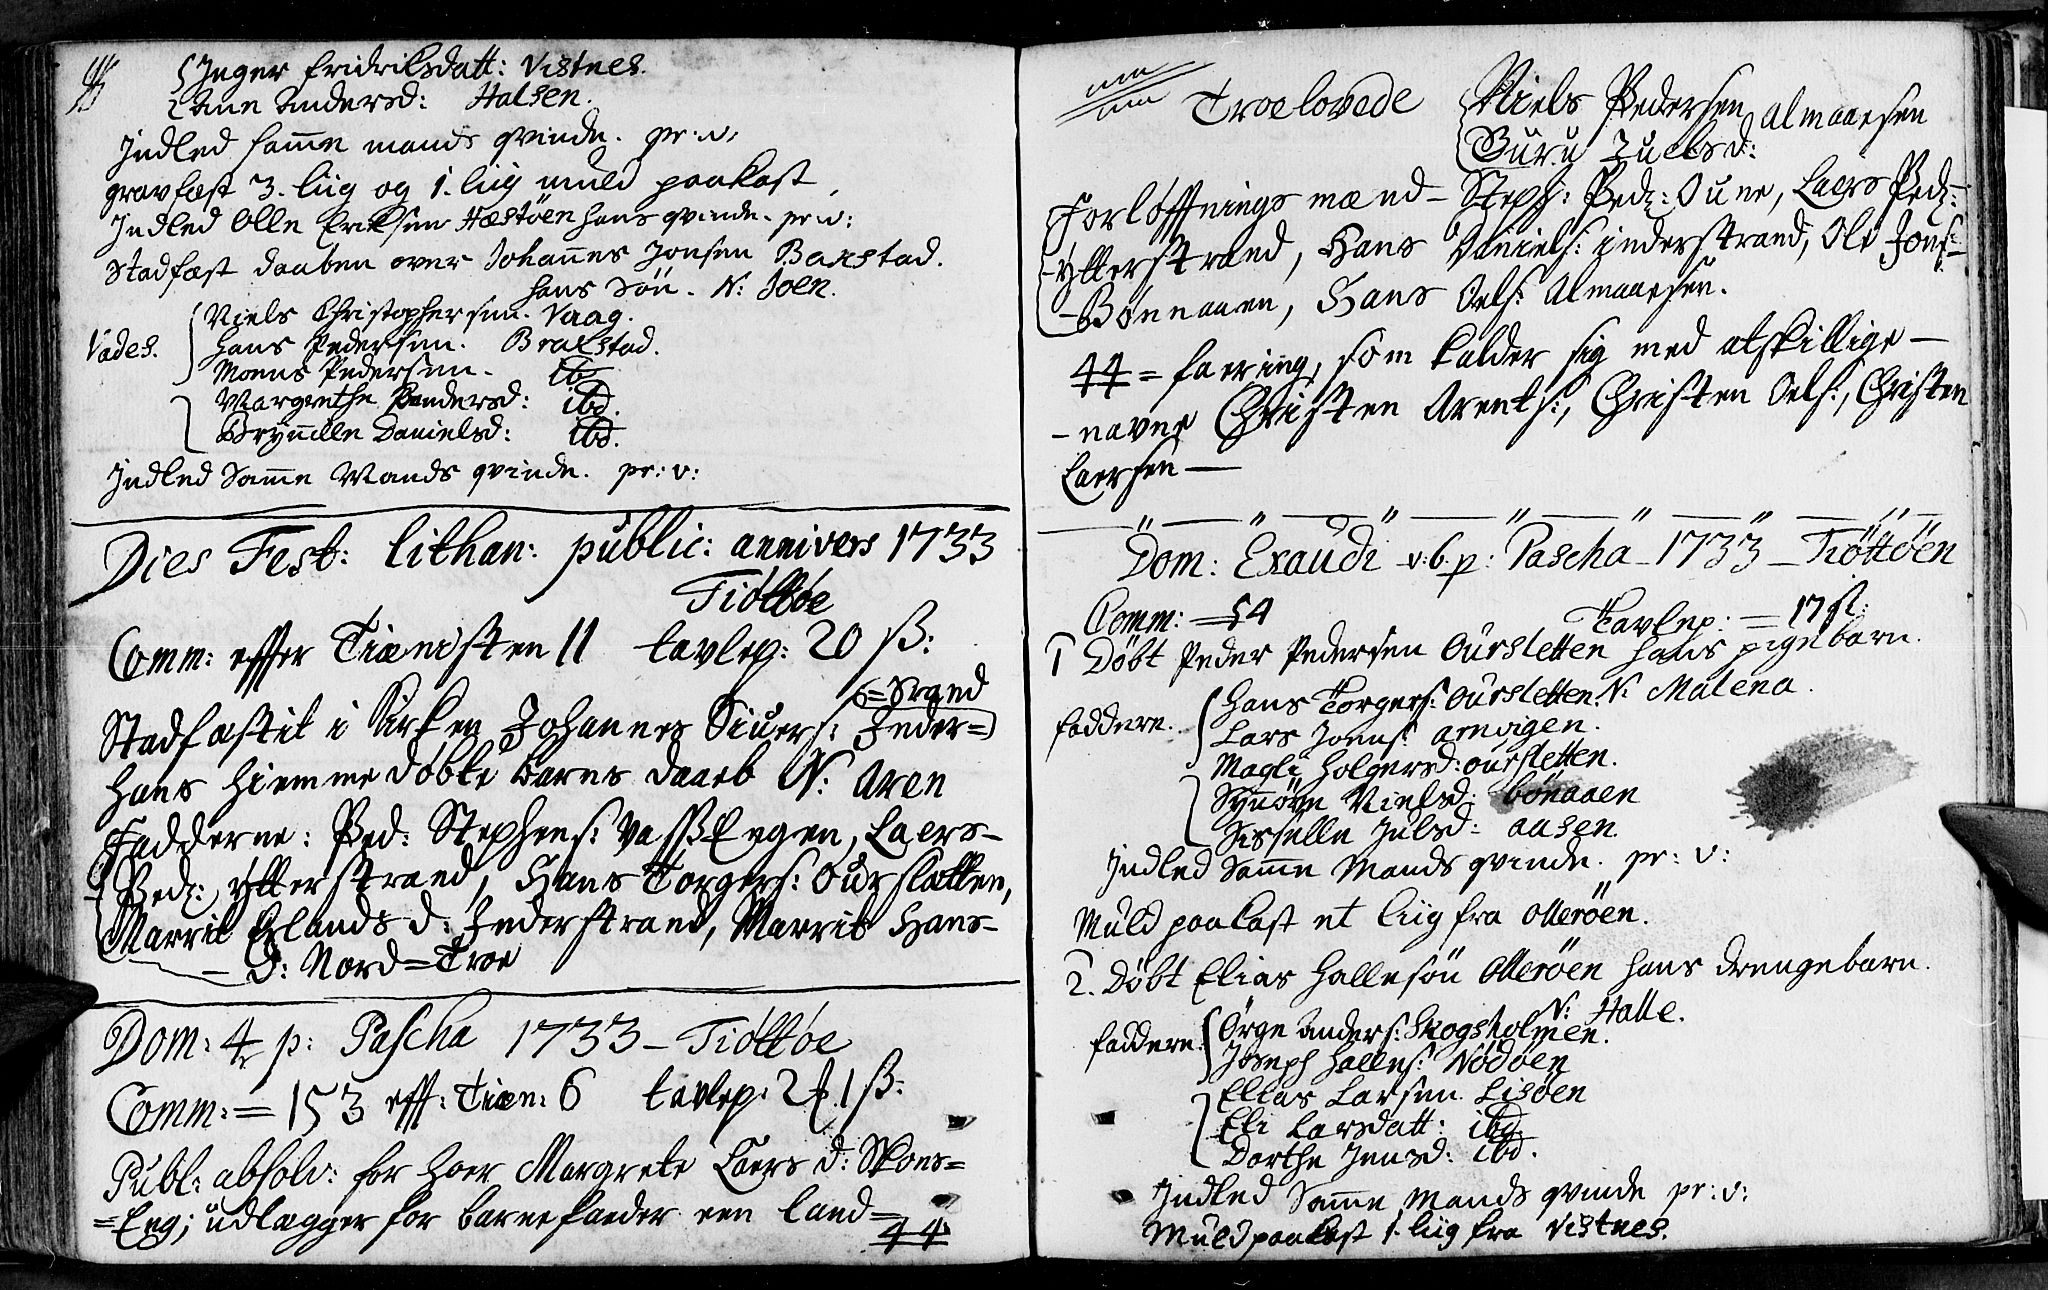 Inger Fridrilsdatt: Vistnes.
Ane Andersd: Halsen.
Indled samme mands qvinde. pr: v:
gravfæst 3. liig og 1. liig muld paakast,
Indled Olle Eriksen Hæstöen hans qvinde. pr: v:
Stadfæst daaben over Johannes Jonsen Baastad.
hans Sön. N: Joen.
Niels Christophersen. Vaag.
Vades. Hans Pedersen. Braestad.
Moens Pedersen. ibd
Margrethe Pandersd: ibd.
Brynnille Danielsd: ibd.
Indled Samme Mands qvinde. pr: v:
Dies Fest: lithan: public: annivers 1733
Tiöttöe
Comm: effter Tienisten 11 tavlep: 20 ß:
Stadfæstit i Kirken Johannes Siuers: Inder=
=Strand
Hans hiemme döbte barns daab N: Aren
Fadderne: Ped: Stephens: Vassengen, Laers-
Ped: ytterstrand, Hans Torgers: Ourslatten,
Marrit Erlands d: Inderstrand, Marrit Hans-
- d: Nord=Troe
Dom: 4 p: Pascha 1733 - Tiöttöe
Comm: = 153 eff: Tien: 6 tavlep: 2 1 ß:
Publ: absolv: for hoer Margrete Laers d: Skons=
=Eng; udlægger for barnefaeder een land=
44
Troelovede Niels Pedersen Almaaesen
Guru Juelsd:
Forlöffnings mænd - Steph: Ped: Oune, Laers Ped:-
-ytterstrand, Hans Daniels: inderstrand, Ole Jons:-
-Bönnaaen, Hans Oels: Almaaesen.
44 = faering, som kalder sig med atskillige -
-navne Christen Arents:, Christen Oels:, Christen
Laersen -
Dom: Exaudi v: 6. p: Pascha - 1733 - Tiöttöen
Comm: = 54 Tavlep: = 17 ß:
1 Döbt Peder Pedersen Oursletten hans pigebarn.
Hans Torgers: Oursletten. N: Malena.
faddere. Lars Joens: arnvigen.
Magli Holgersd: oursletten.
Synöve Nielsd: bönaaen
Sisselle Julsd: aasen.
Indled Samme Mands qvinde. pr: v:
Muld paakast et liig fra Olleröen.
2. Döbt Elias Hallesön Olleröen hans drengebarn.
N: Halle.
faddere. Örge Anders: Skogsholmen.
Joseph Halles: Nödöen
Elias Larsen Lisöen
Eli Larsdatt: ibd.
Dorthe Jensd: ibd.
Indled Samme Mands qvinde pr: v:
Muld paakast 1. liig fra Vistnes.